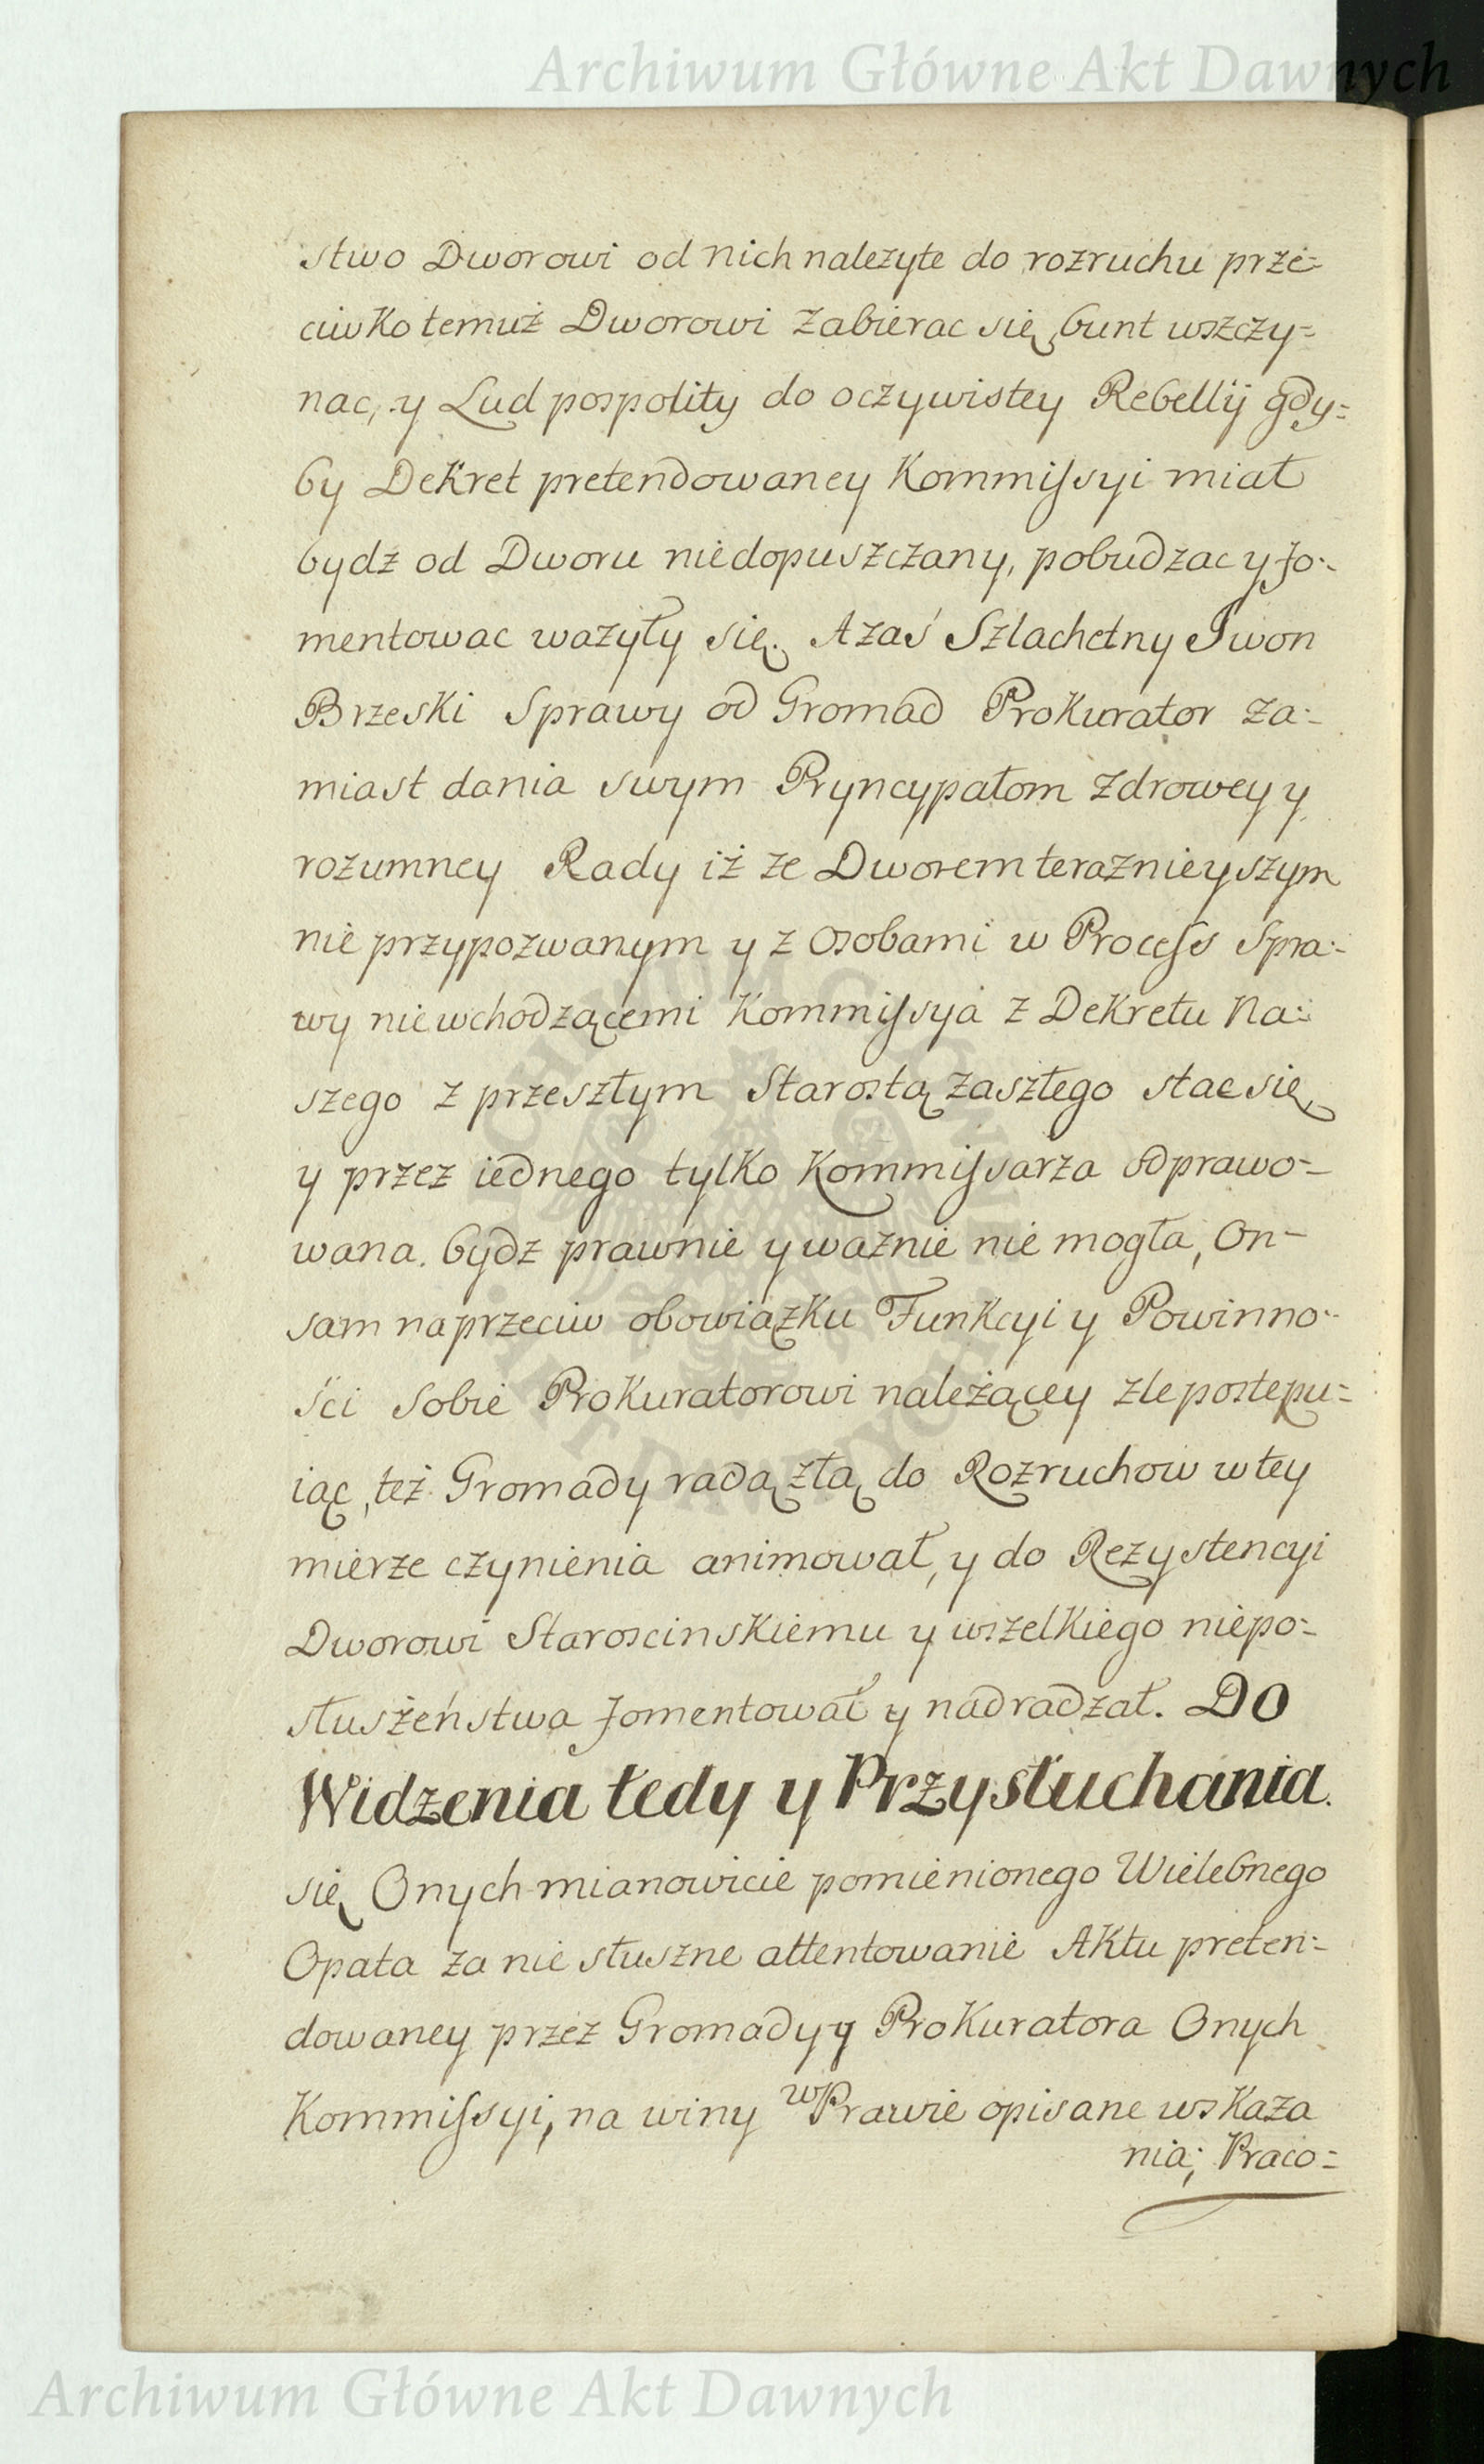 Archiwum Główne Akt Dawnych
stwo Dworowi od nich należyte do rozruchu prze=
ciwko temuż Dworowi zabierac się, bunt wszczy=
nac, y Lud pospolity do oczywistey Rebellij gdy=
by Dekret pretendowaney Kommissyi miał
bydź od Dworu niedopuszczany, pobudzac y fo=
mentowac ważyły się. A zaś Szlachetny Iwon
Brzeski Sprawy od Gromad Prokurator za=
miast dania swym Pryncypałom zdrowey y
rozumney Rady iż ze Dworem teraznieyszym
nie przypozwanym y z osobami w Process Spra=
wy nie wchodzącemi Kommissya z Dekretu Na=
szego z przeszłym Starostą zaszłego stac się
y przez iednego tylko Kommissarza odprawo=
wana bydz prawnie y ważnie nie mogła, on
sam naprzeciw obowiązku Funkcyi y Powinno=
ści sobie Prokuratorowi należącey zle postępu=
iąc, też Gromady radą złą do Rozruchow w tey
mierze czynienia animował, y do Rezystencyi
Dworowi Staroscinskiemu y wszelkiego niepo=
słuszeństwa fomentował y nadradzał. Do
Widzenia tedy y Przysłuchania
się Onych mianowicie pomienionego Wielebnego
Opata za nie słuszne attentowanie Aktu preten=
dowaney przez Gromady y Prokuratora Onych
Kommissyi, na winy w Prawie opisane wskaza
nia; Praco=
Archiwum Główne Akt Dawnych